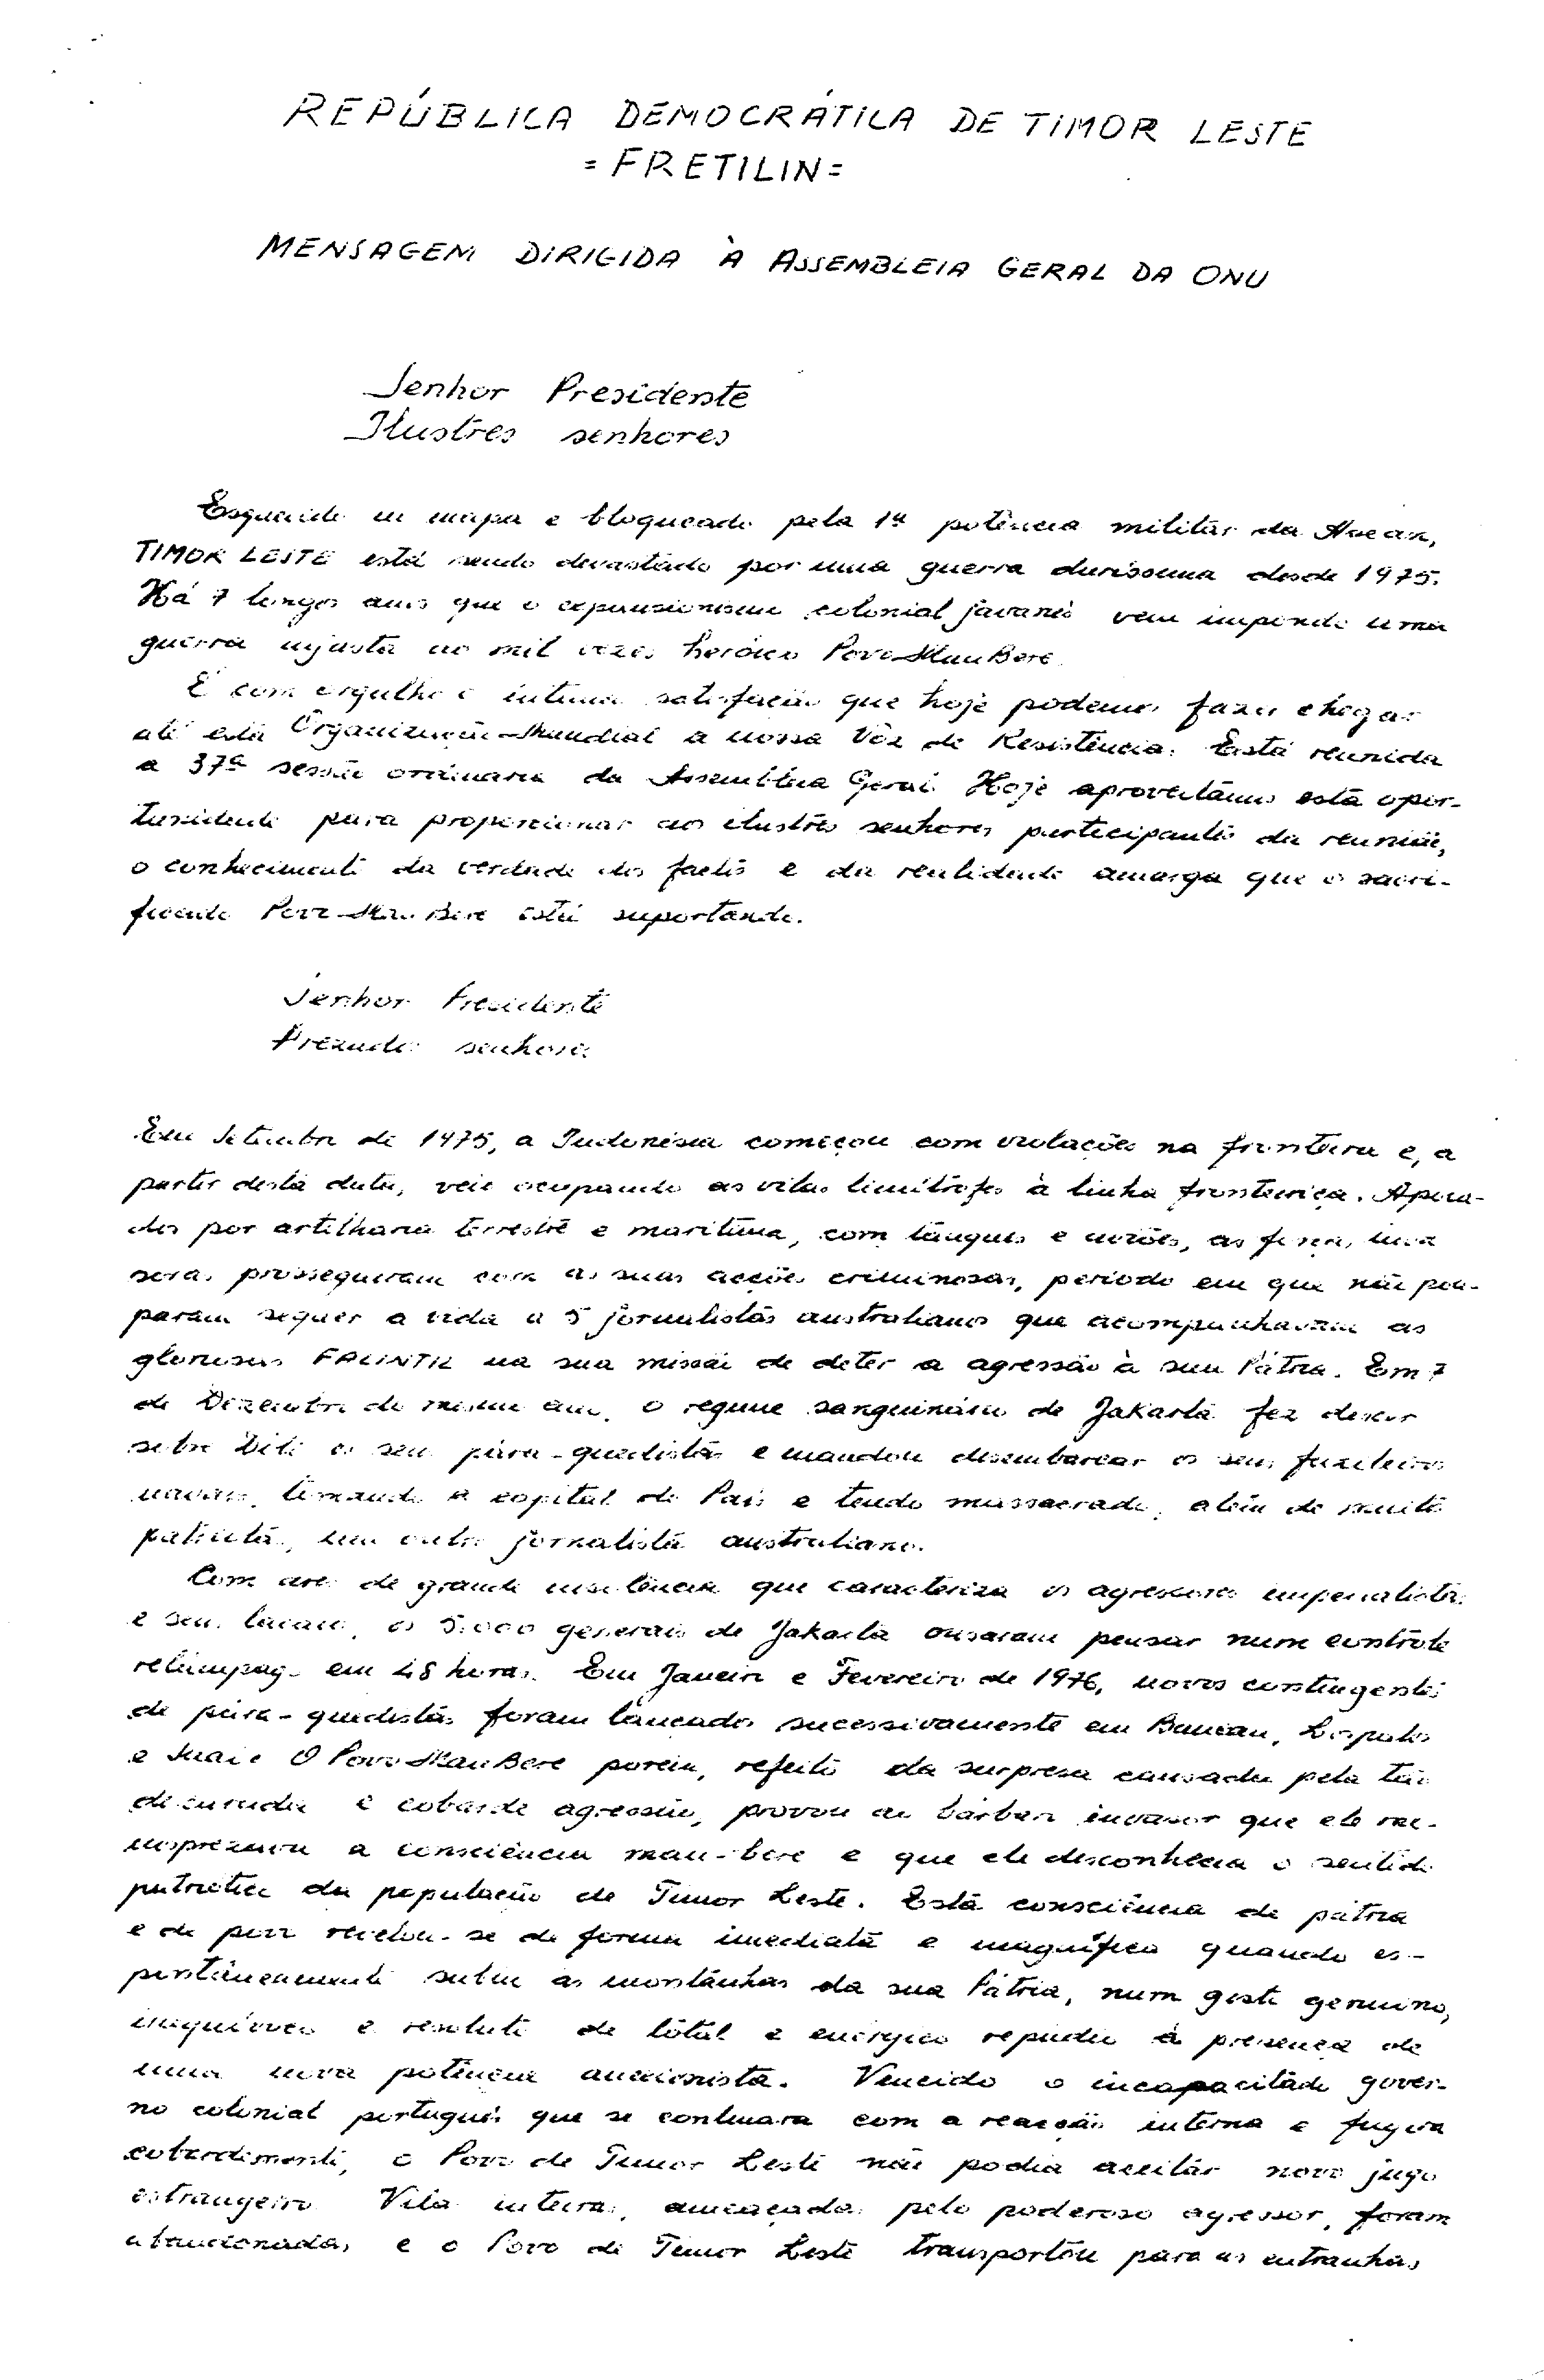 REPÚBLICA DEMOCRÁTICA DE TIMOR LESTE
= FRETILIN =
MENSAGEM DIRIGIDA À ASSEMBLEIA GERAL DA ONU
Senhor Presidente
Ilustres senhores
Esquecido no mapa e bloqueado pela 1ª potência militar da Asean,
TIMOR LESTE está sendo devastado por uma guerra duríssima desde 1975.
Há 7 longos anos que o expansionismo colonial javanês vem impondo uma
guerra injusta ao mil vezes heróico Povo MauBere.
É com orgulho e íntima satisfação que hoje podemos fazer chegar
até esta Organização Mundial a nossa Voz de Resistência. Está reunida
a 37ª sessão ordinária da Assembleia Geral. Hoje aproveitamos esta opor-
tunidade para proporcionar aos ilustres senhores participantes da reunião,
o conhecimento da verdade dos factos e da realidade amarga que o sacri-
ficado Povo MauBere está suportando.
Senhor Presidente
Prezados senhores
Em Setembro de 1975, a Indonésia começou com violações na fronteira e, a
partir desta data, veio ocupando as vilas limítrofes à linha fronteiriça. Apoia-
dos por artilharia terrestre e marítima, com tanques e aviões, as forças inva
soras prosseguiram com as suas acções criminosas, período em que não pou-
param sequer a vida a 5 jornalistas australianos que acompanhavam as
gloriosas FALINTIL na sua missão de deter a agressão à sua Pátria. Em 7
de Dezembro do mesmo ano, o regime sanguinário de Jakarta fez descer
sobre Dili os seus pára-quedistas e mandou desembarcar os seus fuzileiros
navais, tomando a capital do País e tendo massacrado, além de muitos
patriotas, um outro jornalista australiano.
Com ares de grande insolência que caracteriza os agressores imperialistas
e seus lacaios, os 5.000 generais de Jakarta ousaram pensar num controle
relâmpago em 48 horas. Em Janeiro e Fevereiro de 1976, novos contingentes
de pára-quedistas foram lançados sucessivamente em Baucau, Lospalos
e Suai. O Povo MauBere porém, refeito da surpresa causada pela tão
descarada e cobarde agressão, provou ao bárbaro invasor que ele me-
nosprezava a consciência mau-bere e que ele desconhecia o sentido
patriótico da população de Timor Leste. Esta consciência de pátria
e de povo revelou-se de forma imediata e magnífica quando es-
pontâneamente subiu as montanhas da sua Pátria, num gesto genuíno,
inequívoco e resoluto de total e enérgico repúdio à presença de
uma nova potência anexionista. Vencido o incapacitado gover-
no colonial português que se conluiara com a reacção interna e fugira
cobardemente, o Povo de Timor Leste não podia aceitar novo jugo
estrangeiro. Vilas inteiras, ameaçadas pelo poderoso agressor, foram
abandonadas e o Povo de Timor Leste transportou para as entranhas